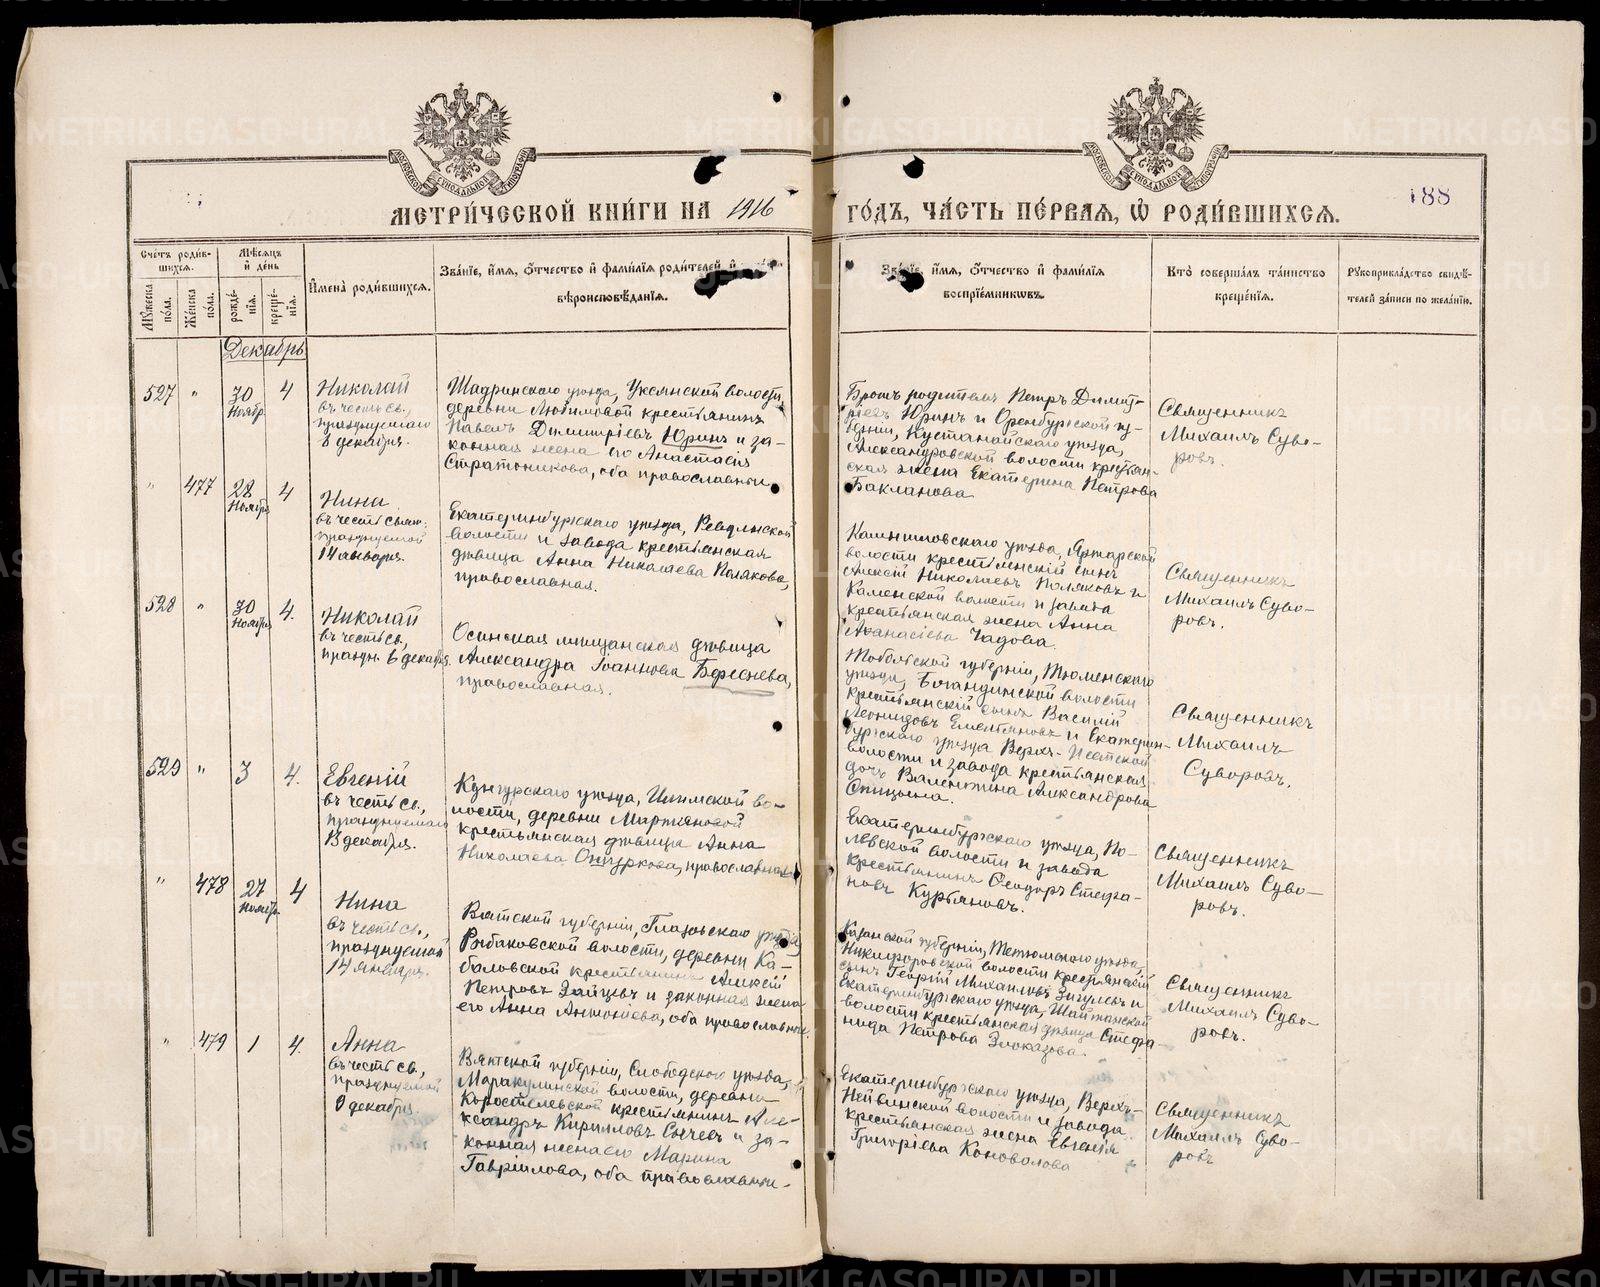 МЕТРИ́ЧЕСКОЙ КНИ́ГИ НА 1916
ГО́ДЪ, ЧА́СТЬ ПЕ́РВАѦ, Ѡ҆ РОДИ́ВШИХСѦ.
188
Сче́тъ роди́в-
шихсѧ.
Мꙋ́жеска по́ла.
Же́нска пола.
Мѣ́сѧцъ
и҆ де́нь
рожде́нїѧ.
креще́нїѧ.
И҆мена̀ роди́вшихсѧ.
Зва́нїе, и҆́мѧ, ѻ҆́тчество и҆ фамі́лїѧ роди́телей и҆
вѣроисповѣ́данїѧ.
Зва́нїе, и҆́мѧ, ѻ҆́тчество и҆ фамі́лїѧ
воспрїе́мникѡвъ.
Кто̀ соверша́лъ та́инство
креще́нїѧ.
Рꙋкоприкла́дство свидѣ́-
телей за́писи по жела́нїю.
Декабрь
527 " 30 4
Ноябр
Николай
въ честь св.,
празднуемаго
6 декабря.
Шадринскаго уѣзда, Уксянской волости,
деревни Любимовой крестьянинъ
Павелъ Димитріевъ Юринъ и за-
конная жена его Анастасія
Стратоникова, оба православные
Братъ родителя Петръ Димит-
ріевъ Юринъ и Оренбургской гу-
берніи, Кустанайскаго уѣзда,
Александровской волости крестьян-
ская жена Екатерина Петрова
Бакланова
Священникъ
Михаилъ Суво-
ровъ.
" 477 28 4
Ноября
Нина
въ честь свят.
празднуемой
14 января.
Екатеринбургскаго уѣзда, Ревдинской
волости и завода крестьянская
дѣвица Анна Николаева Полякова,
православная.
Камышловскаго уѣзда,
волости крестьянскій сынъ
Алексій Николаевъ Поляковъ и
Каменской волости и завода
крестьянская жена Анна
Аѳанасіева Чадова.
Священникъ
Михаилъ Суво-
ровъ.
528 " 30 4.
Ноября
Николай
въ честь св,
праздн. 6 декабря.
Осинская мѣщанская дѣвица
Александра Іоаннова Береснева,
православная.
Тобольской губерніи, Тюменскаго
уѣзда, Богандинской волости
крестьянскій сынъ Василій
Леонидовъ Емельяновъ и Екатерин-
бургскаго уѣзда Верхъ-Исетской
волости и завода крестьянская
дочь Валентина Александрова
Спицына.
Священникъ
Михаилъ
Суворовъ.
529 " 3 4.
Евгеній
въ честь св.,
празднуемаго
13 декабря.
Кунгурскаго уѣзда, Илимской во-
лости, деревни Мартьяновой
крестьянская дѣвица Анна
Николаева Ошуркова, православная
Екатеринбургскаго уѣзда, По-
левской волости и завода
крестьянинъ Ѳеодоръ Стефа-
новъ Курбановъ.
Священникъ
Михаилъ Суво-
ровъ.
" 478 27 4
Ноября
Нина
въ честь св.,
празднуемой
14 января.
Вятской губерніи, Глазовскаго уѣзда
Рыбаковской волости, деревни Ка-
баловской крестьянинъ Алексій
Петровъ Зайцевъ и законная жена
его Анна Антоніева, оба православные.
Казанской губерніи, Тетюшскаго уѣзда,
Никифоровской волости крестьянскій
сынъ Георгій Михаиловъ Зигулевъ и
Екатеринбургскаго уѣзда, Шайтанской
волости крестьянская дѣвица Стефа-
нида Петрова Злоказова.
Священникъ
Михаилъ Суво-
ровъ.
" 479 1 4.
Анна
въ честь св.,
празднуемой
9 декабря.
Вятской губерніи, Слободскаго уѣзда,
Маракулинской волости, деревни
Коростелевской крестьянинъ Але-
ксандръ Кирилловъ Сычевъ и за-
конная жена его Марина
Гавріилова, оба православные.
Екатеринбургскаго уѣзда, Верхъ-
Нейвинской волости и завода
крестьянская жена Евгенія
Григоріева Коновалова
Священникъ
Михаилъ Суво-
ровъ
METRIKI.GASO-URAL.RU